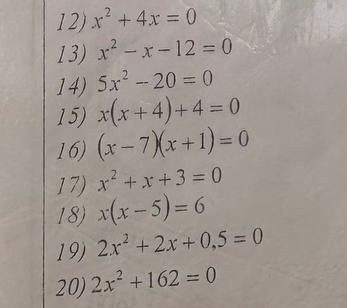 12) x² + 4x = 0
13) x² − x − 12 = 0
14) 5x² − 20 = 0
15) x(x + 4) + 4 = 0
16) (x − 7)(x + 1) = 0
17) x² + x + 3 = 0
18) x(x − 5) = 6
19) 2x² + 2x + 0,5 = 0
20) 2x² + 162 = 0